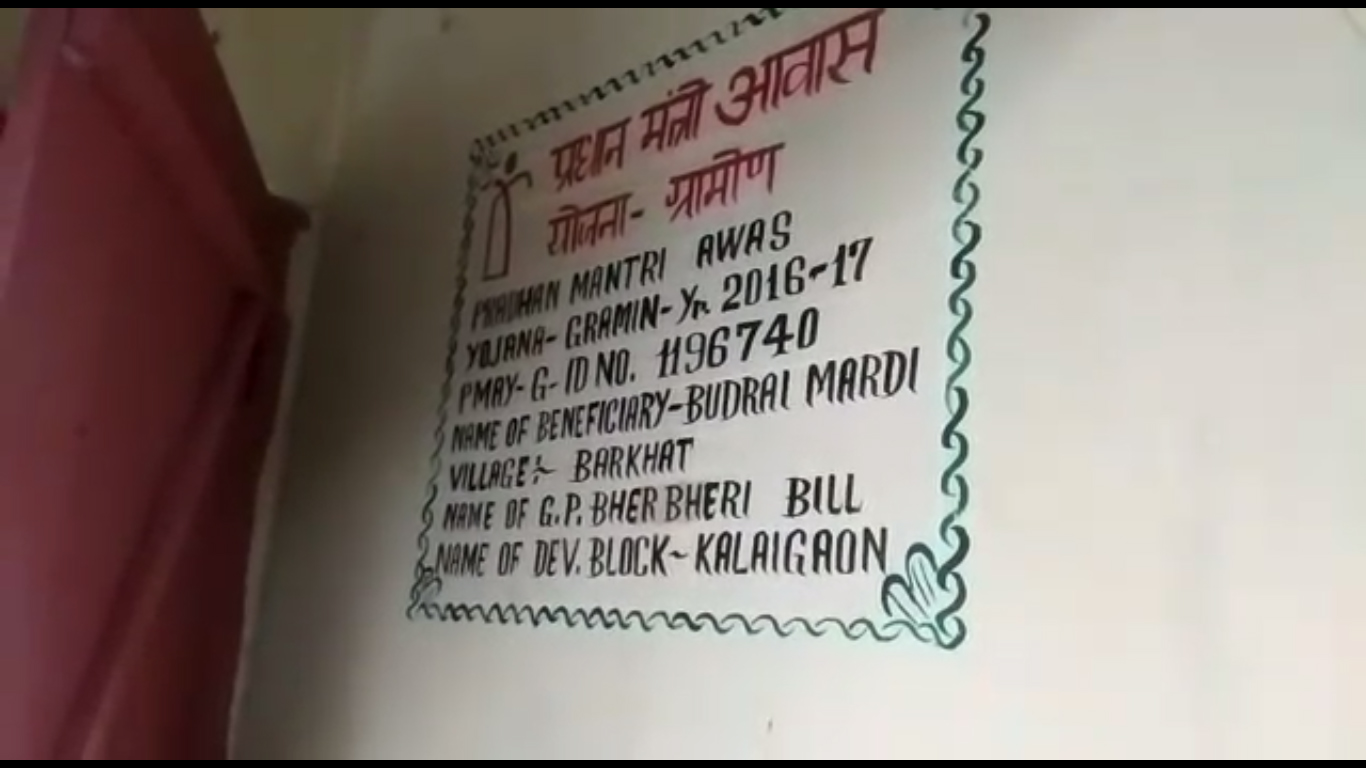 प्रधान मंत्री आवास
योजना- ग्रामीण
PRADHAN MANTRI AWAS
YOJANA- GRAMIN- Yr. 2016-17
PMAY- G- ID NO. 1196740
NAME OF BENEFICIARY-BUDRAI MARDI
VILLAGE:- BARKHAT
NAME OF G.P. BHER BHERI BILL
NAME OF DEV. BLOCK~ KALAIGAON